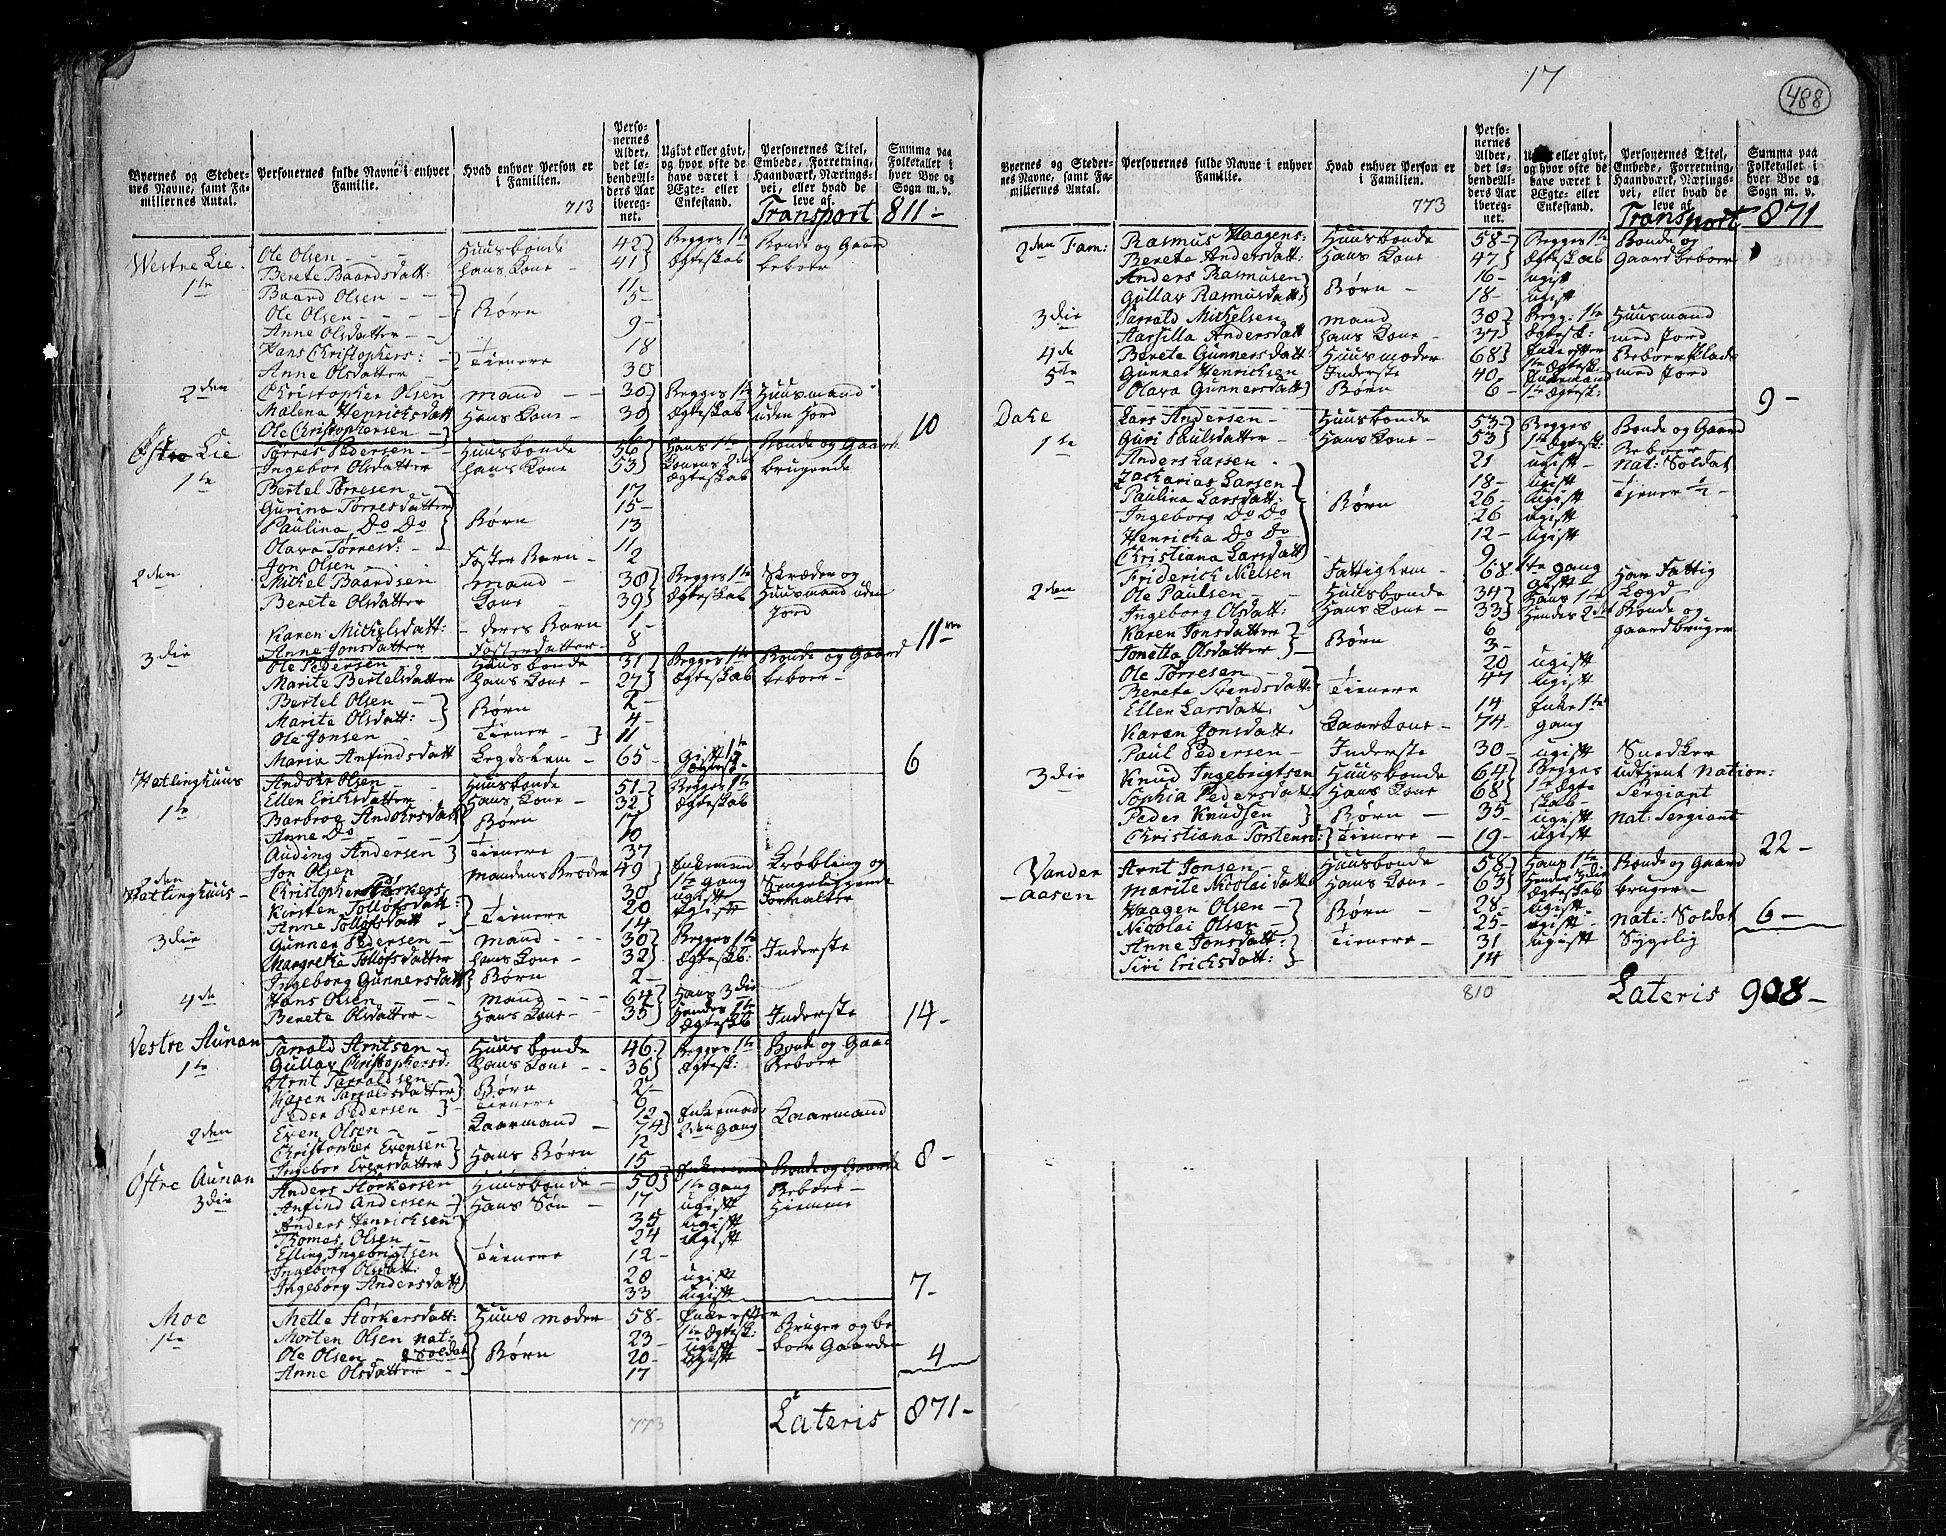 17
488
Byernes og Stedernes Navne, samt Familiernes Antal.
Personernes fulde Navne i enhver Familie.
Hvad enhver Person er i Familien.
Personernes Alder, det løbende Alders Aar iberegnet.
Ugivt eller givt, og hvor ofte de have været i Ægte- eller Enkestand.
Personernes Titel, Embede, Forretning, Haandværk, Næringsvei, eller hvad de leve af.
Summa paa Folketallet i hver Bye og Sogn m. v.
713 Transport 811-
Westre Lie. Ole Olsen - - - Huusbonde 42 Begges 1te Bonde og Gaard
Berete Baardsdatt: hans Kone - 41 Ægteskab beboer
1te Baard Olsen - - 11
Ole Olsen - - - - } Børn 5-
Anne Olsdatter - 9-
Hans Christophers: } Tienere 18
Anne Olsdatter - 30
2den Christopher Olsen mand - - 30 Begges 1te Huusmand
Malena Henricksdatt Hans Kone - 30 Ægteskab uden Jord
Ole Christophersen - 10
Østre Lie Torres Pedersen - Huusbonde 56 Hans 1te Bonde og Gaard
Ingebor Olsdatter hans Kone 53 Konens 2den brugende
1te Bertel Torresen 17 Ægteskab
Gurina Torresdatter 15-
Paulina Do Do } Børn 13
Olava Torresd: - 11
Jon Olsen - Foster Barn - 2
2den Michel Baardsen mand - 38 Begges 1te Skræder og
Berete Olsdatter Kone - 39 Ægteskab Huusmand uden
Karen Michelsdatt: - deres Barn 1- Jord
Anne Jonsdatter Fosterdatter - 8 11
3die Ole Pedersen - Huusbonde 31 Begges 1te Bonde og Gaard
Marite Bertelsdatter hans Kone - 27 Ægteskab beboer -
Bertel Olsen - } Børn 2-
Marite Olsdatt: 4-
Ole Jonsen - Tienere - } 11
Maria Anfindsdatt Legdslem - 65- Gift 1te Ægtesk- 6
Hatlinghuus Andor Olsen - Huusbonde 51- Begges 1te
Ellen Ericksdatter Hans Kone - 32 Ægteskab
1te Barbroe Andorsdatt } Børn
Anne Do - 10
Auding Andersen } Tienere 37
2den Jon Olsen mandens Broder 49 Enkemand Krøbling og
Hatlinghuus - Christopher 30 1te Gang Sengeliggende
Kirsten Tollofsdatt: } Tienere 20 ugift
Anne Tollofsdatt - 14
3die Gunner Pedersen - mand - - - 30 Begges 1te Inderste
Margrethe Tollofsdatter Hans Kone - 32 Ægteskab:
Ingeborg Gunnersdatt } Børn 2-
4de Hans Olsen - - mand - - - 64 Hans 3die
Berete Olsdatter - Hans Kone - 35 Hendes 1te Ægteskab Inderste 14-
Vestre Aunan Tarrald Arntsen - Huusbonde 46 Begges 1te Bonde og Gaard
1te Gullav Christophersd: Hans Kone - 36 Ægtesk: Beboer
Arnt Tarraldsen } Børn 2-
Karen Tarraldsdatter 6
Peder Pedersen } - Tienere 12
2den Even Olsen - - Kaarmand - 74 Enkemand 2den Gang Kaarmand
Christopher Evensen } Hans Børn 12
Ingebor Evensdatter 15 8-
Østre Aunan Anders Størkersen Huusbonde - 50 Enkemand Bonde og Gaards
3die Anfind Andersen - Hans Søn - 17 1te Gang Beboer -
Anders Henricksen 35 ugift Hiemme
Thomas Olsen - 24 ugift
Elling Ingebrigtsen } Tienere 12-
Ingeborg Olsdatt: 28 ugift
Ingeborg Andersdatt 33 ugift 7-
Moe Mette Størkersdatt: Huus moder 58- Enke efter
1te Morten Olsen nat: Soldat 23- 1te Ægtesk: Bruger og be
Ole Olsen } Børn 20- ugift boer Gaarden
Anne Olsdatter - 17 4
773 Lateris 871-
Byernes og Stedernes Navne, samt Familiernes Antal.
Personernes fulde Navne i enhver Familie.
Hvad enhver Person er i Familien.
Personernes Alder, det løbende Alders Aar iberegnet.
eller givt, og hvor ofte de have været i Ægte- eller Enkestand.
Personernes Titel, Embede, Forretning, Haandværk, Næringsvei, eller hvad de leve af.
Summa paa Folketallet i hver Bye og Sogn m. v.
773 Transport 871
2den Fam: Rasmus Haagens: Huusbonde 58- Begges 1te Bonde og
Berete Andersdatt: Hans Kone 47 Ægteskab Gaard beboer
Anders Rasmusen } Børn - 16- ugift
Gullav Rasmusdatt: 18- ugift
3die Tarrald Michelsen mand - 38 Begg: 1te Huusmand
Marsilla Andersdatt hans Kone - 37 Ægtesk: med Jord
4de Berete Gunnersdatt: Huusmoder 68 Enke efter 1te Ægtesk: Beboer Plads
5te Gunner Henricksen Inderste 40 Enkemand med Jord
Olava Gunnersdatt Børn 6- 1te Ægtesk: 9-
Dahe Lars Andersen Huusbonde 53- Begges Bonde og Gaard
1te Guri Paulsdatter - Hans Kone - 53 1te Ægtesk: Beboer
Anders Larsen - 21 ugift - nat: Soldat
Zacharias Larsen - 18- ugift Tjener
Paulina Larsdatt: } Børn 26- ugift
Ingeborg Do Do 26 ugift
Henricha Do Do 12- ugift
Christiana Larsdatt 9
Friderich Nielsen Fattiglem - 68 1te gang Har Fattig
2den Ole Paulsen - Huusbonde 34 Hans 1te Lægd -
Ingeborg Olsdatt: Hans Kone - 33 Hendes 2det Bonde og
Karen Jonsdatter } Børn 6 Gaardbruger
Jonetta Olsdatter 3-
Ole Torresen - 20 ugift
Berete Svendsdatt: } Tienere 47 ugift
Ellen Larsdatt. 14
Karen Jonsdatt. Kaarkone - 74- Enke 1te gang
Paul Pedersen - Inderste 30- ugift Snedker
3die Knud Ingebrigtsen Huusbonde 64 Begges udtjent Nation:
Sophia Pedersdatt Hans Kone - 68 1te Ægteskab - Sergiant
Peder Knudsen } Børn - 35 ugift nat: Sergiant
Christiana Torstensd: } Tienere - 19- ugift 22-
Vander Arnt Jonsen - Huusbonde 58 Hans 1te Bonde og Gaard
-aasen Marite Nicolaidatt Hans Kone - 63 Hendes 3die Ægteskab bruger -
Haagen Olsen - } Børn - 28- ugift
Nicolai Olsen - 25- ugift nati: Soldat 6-
Anne Jonsdatt: } Tienere - 31 ugift Sygelig
Siri Ericksdatt: 14
810 Lateris 908-